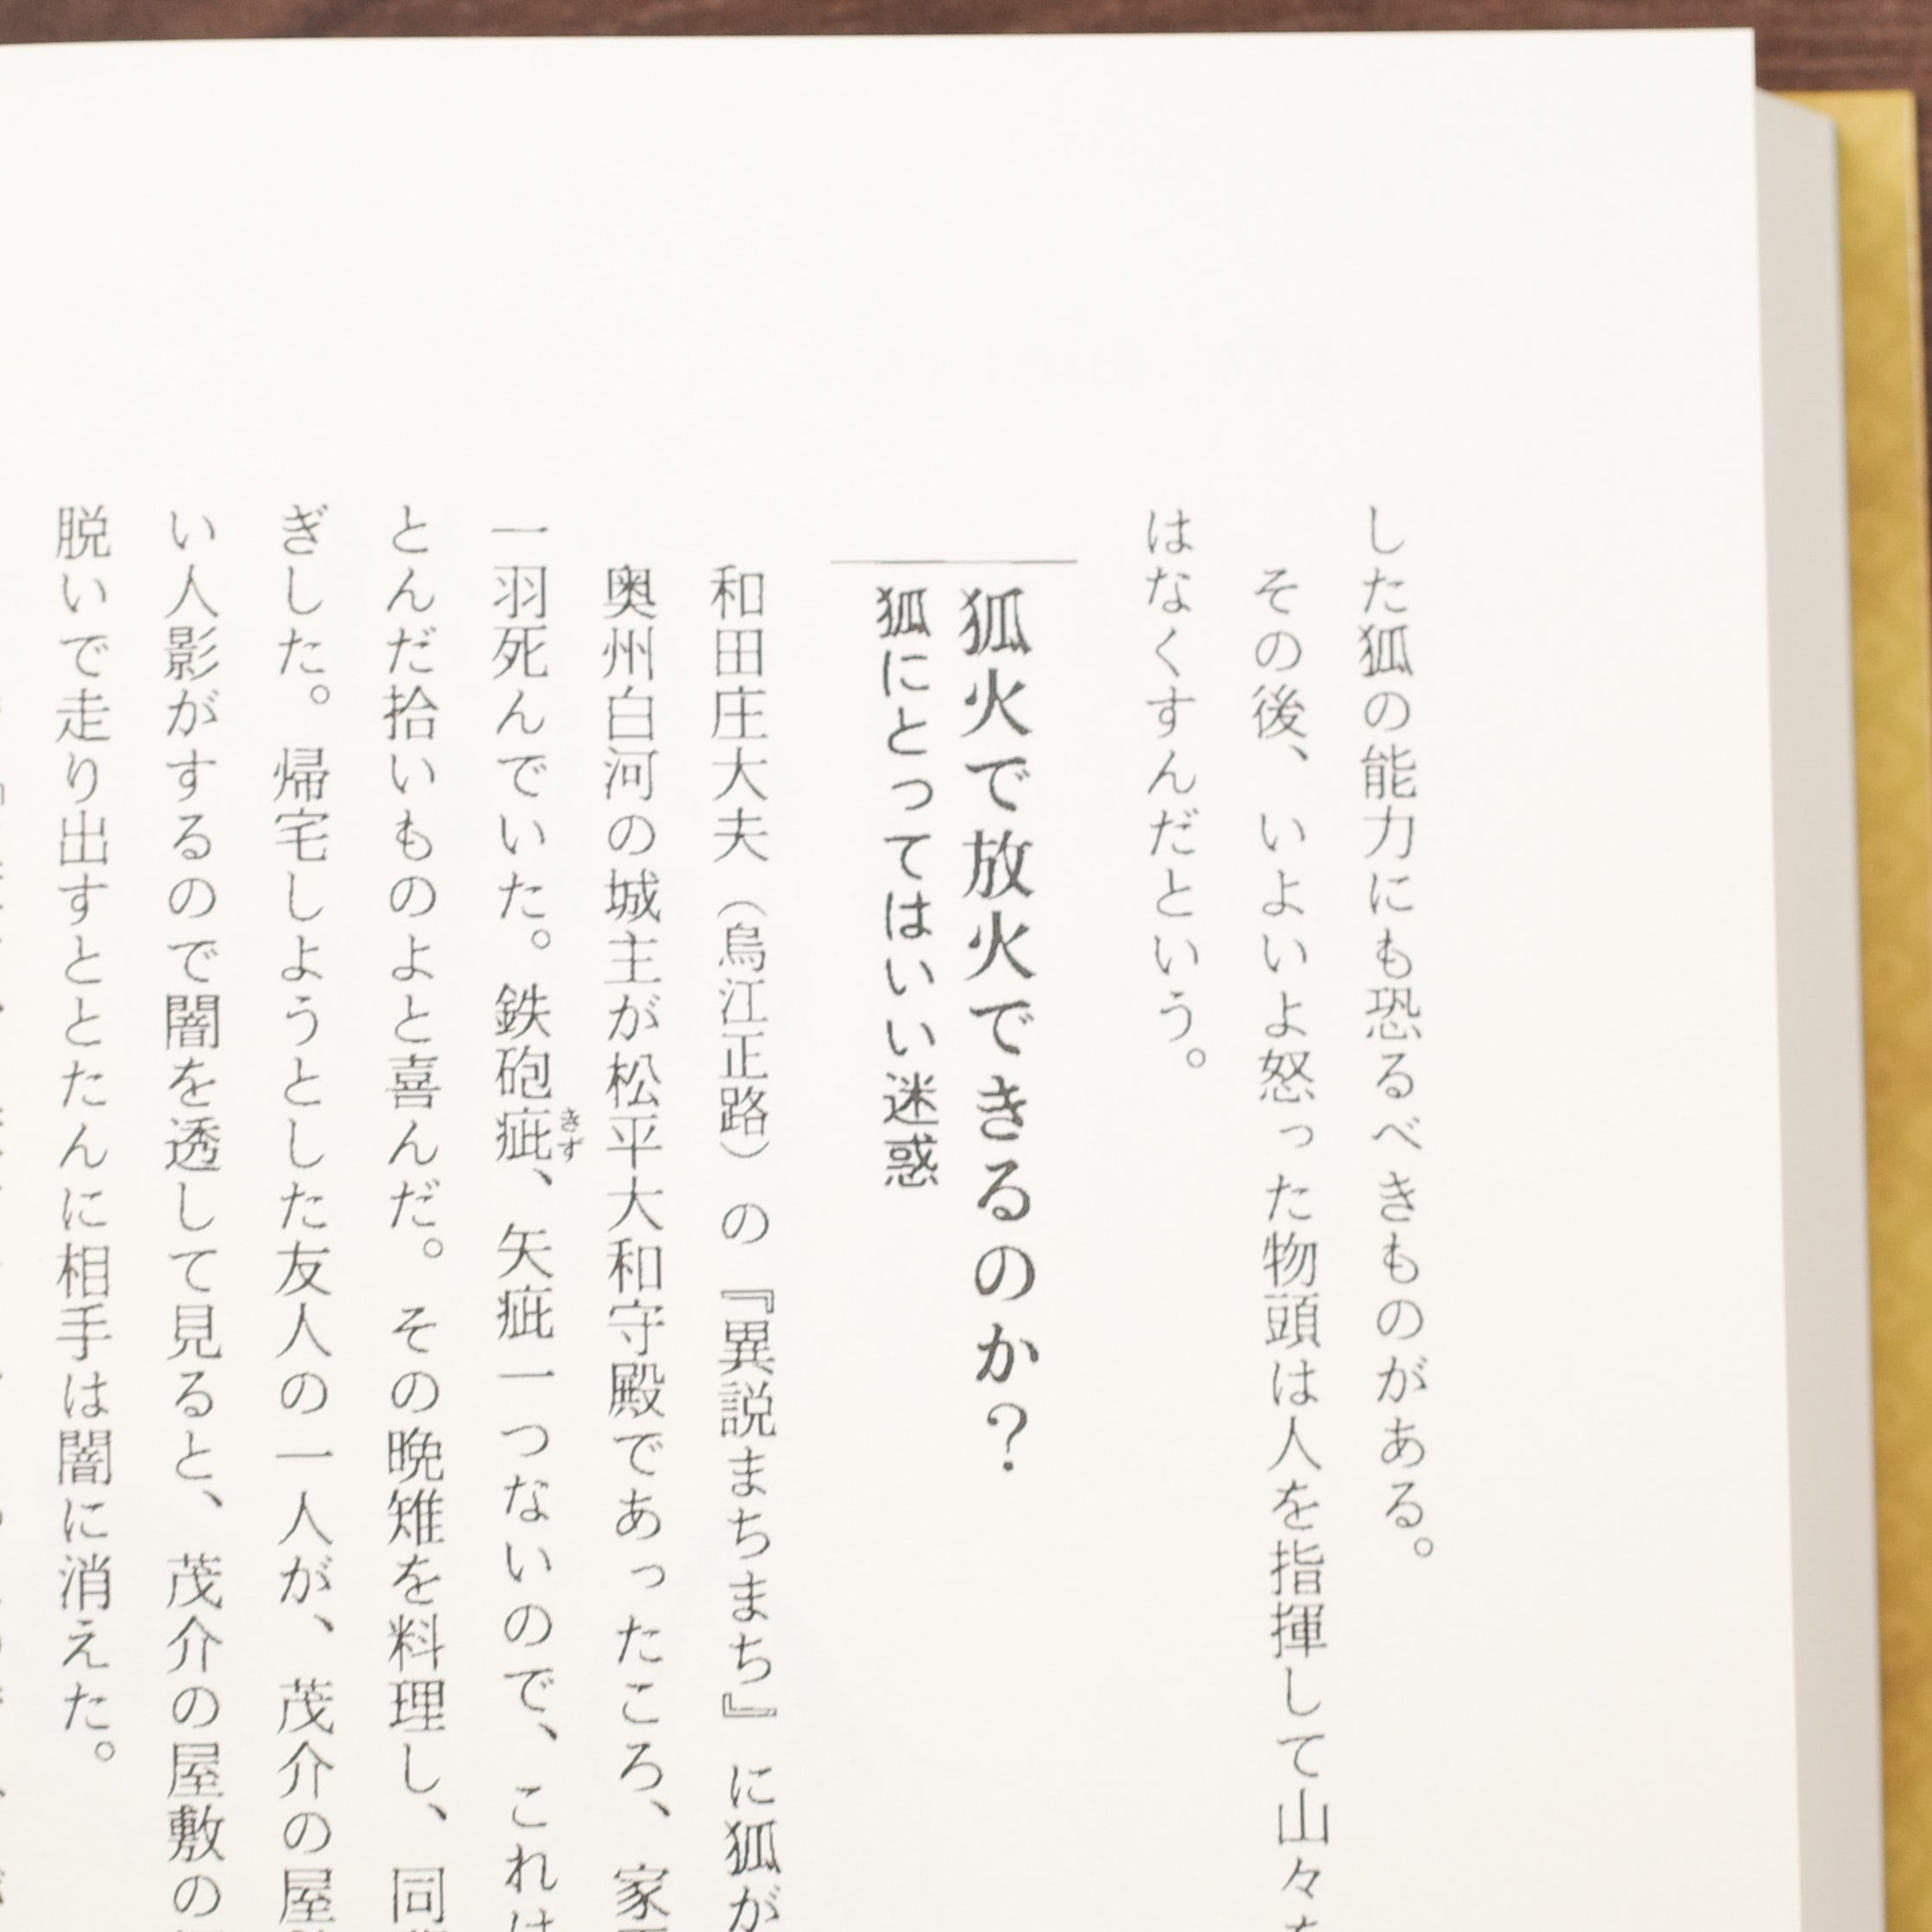 した狐の能力にも恐るべきものがある。
その後、いよいよ怒った物頭は人を指揮して山々を
はなくすんだという。
狐火で放火できるのか？
狐にとってはいい迷惑
和田庄大夫（烏江正路）の『異説まちまち』に狐が
奥州白河の城主が松平大和守殿であったころ、家
一羽死んでいた。鉄砲疵、矢疵一つないので、これは
きず
とんだ拾いものよと喜んだ。その晩雉を料理し、同
ぎした。帰宅しようとした友人の一人が、茂介の屋
い人影がするので闇を透して見ると、茂介の屋敷の
脱いで走り出すととたんに相手は闇に消えた。